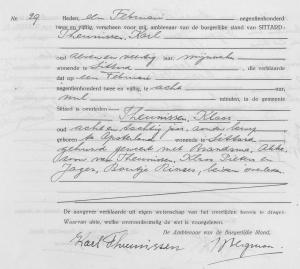 Nr. 29 Heden, een Februari negentienhonderd
twee en vijftig, verscheen voor mij, ambtenaar van de burgerlijke stand van SITTARD:
Theunissen, Karl
oud zeven en veertig jaar, mijnwerker
wonende te Sittard, die verklaarde
dat op een Februari
negentienhonderd twee en vijftig, te acht uur
nul minuten, in de gemeente
Sittard is overleden:
Theunissen, Klaas
oud acht en tachtig jaar, zonder beroep
geboren te Opsterland wonende te Sittard
gehuwd geweest met Brandsma, Akke
zoon van Theunissen, Klaas Sietzes en
Jager, Bontje Rinses, beiden overleden
De aangever verklaarde uit eigen wetenschap van het overlijden kennis te dragen.
Waarvan akte, welke overeenkomstig de wet is voorgelezen.
De Ambtenaar van de Burgerlijke Stand,
Karl Theunissen